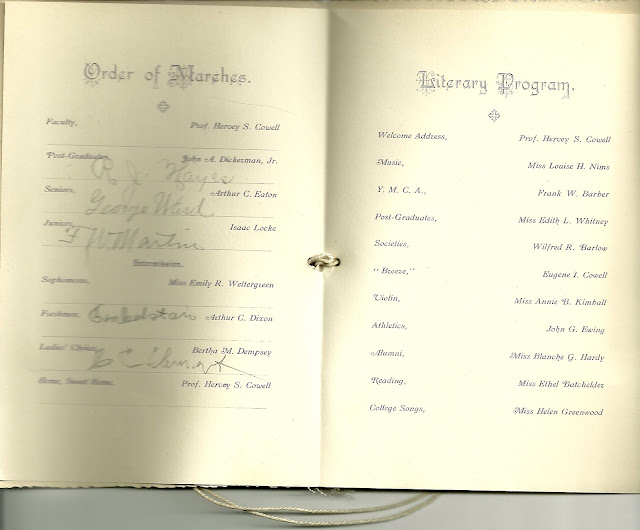 Order of Marches.
Faculty, Prof. Hervey S. Cowell
Post-Graduates, John A. Dickerman, Jr.
R J Hayes
Seniors, Arthur C. Eaton
George Ward
Juniors, Isaac Locke
F W. Martin
Intermission.
Sophomores, Miss Emily R. Wettergreen
Freshmen, Arthur C. Dixon
Ladies' Choice, Bertha M. Dempsey
Home, Sweet Home, Prof. Hervey S. Cowell
Literary Program.
Welcome Address, Prof. Hervey S. Cowell
Music, Miss Louise H. Nims
Y. M. C. A., Frank W. Barber
Post-Graduates, Miss Edith L. Whitney
Societies, Wilfred R. Barlow
"Breeze," Eugene I. Cowell
Violin, Miss Annie B. Kimball
Athletics, John G. Ewing
Alumni, Miss Blanche G. Hardy
Reading, Miss Ethel Batchelder
College Songs, Miss Helen Greenwood